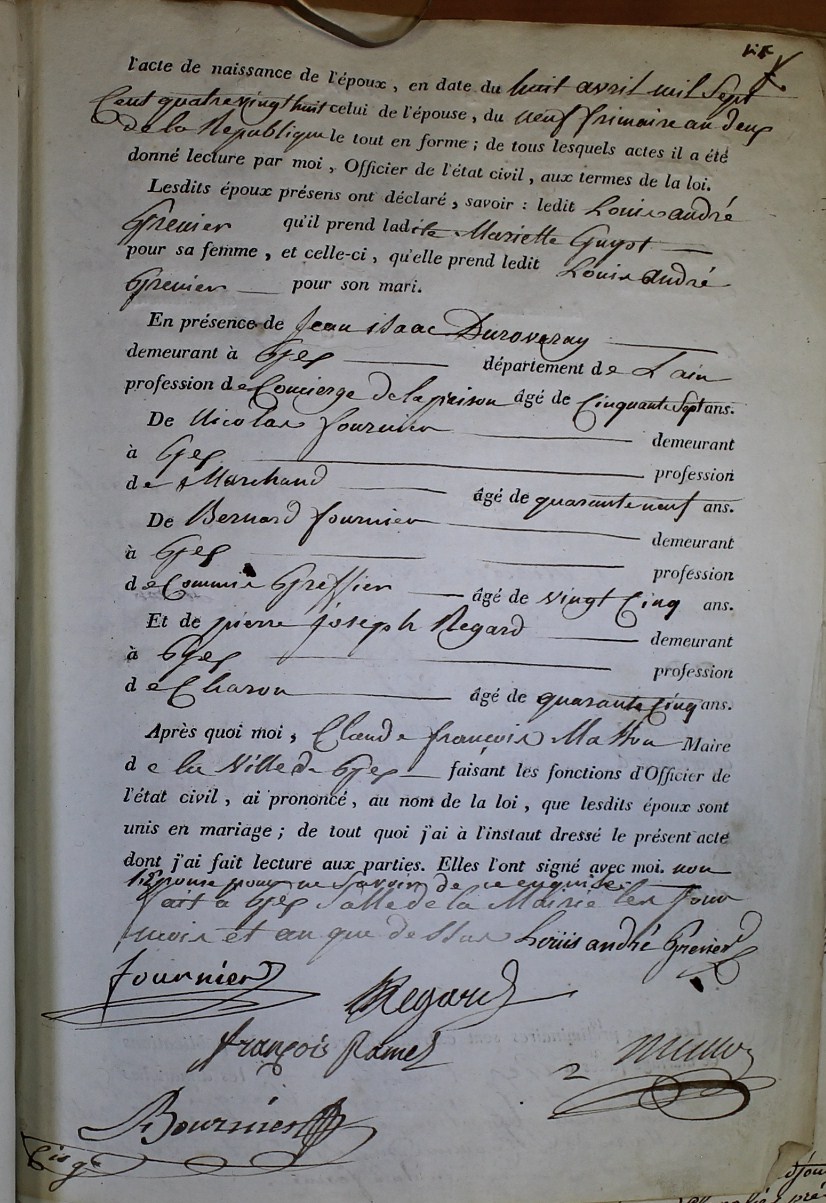 l'acte de naissance de l'époux, en date du huit avril mil Sept
Cent quatrevingthuit celui de l'épouse, du neuf frimaire an deux
de la Republique le tout en forme ; de tous lesquels actes il a été
donné lecture par moi, Officier de l'état civil, aux termes de la loi.
Lesdits époux présens ont déclaré, savoir : ledit Louis andré
Grenier qu'il prend ladite Mariette Guyot
pour sa femme, et celle-ci, qu'elle prend ledit Louis andré
Grenier pour son mari.
En présence de Jean isaac Duroveray
demeurant à Gex département de L'ain
profession de Concierge de la prison âgé de Cinquante Sept ans.
De Nicolas fournier demeurant
à Gex profession
de Marchand âgé de quarante neuf ans.
De Bernard fournier demeurant
à Gex profession
de Commis Greffier âgé de vingt Cinq ans.
Et de pierre joseph Regard demeurant
à Gex profession
de Charon âgé de quarante Cinq ans.
Après quoi moi, Claude françois Mathon Maire
de la Ville de Gex faisant les fonctions d'Officier de
l'état civil, ai prononcé, au nom de la loi, que lesdits époux sont
unis en mariage ; de tout quoi j'ai à l'instaut dressé le présent acte
dont j'ai fait lecture aux parties. Elles l'ont signé avec moi. non
l'Epouse pour ne Savoir de ce enquise
fait à Gex Salle de la Mairie les jour
mois et an que dessus Loüis andré Grenier
fournier
Regard
françois Ramel